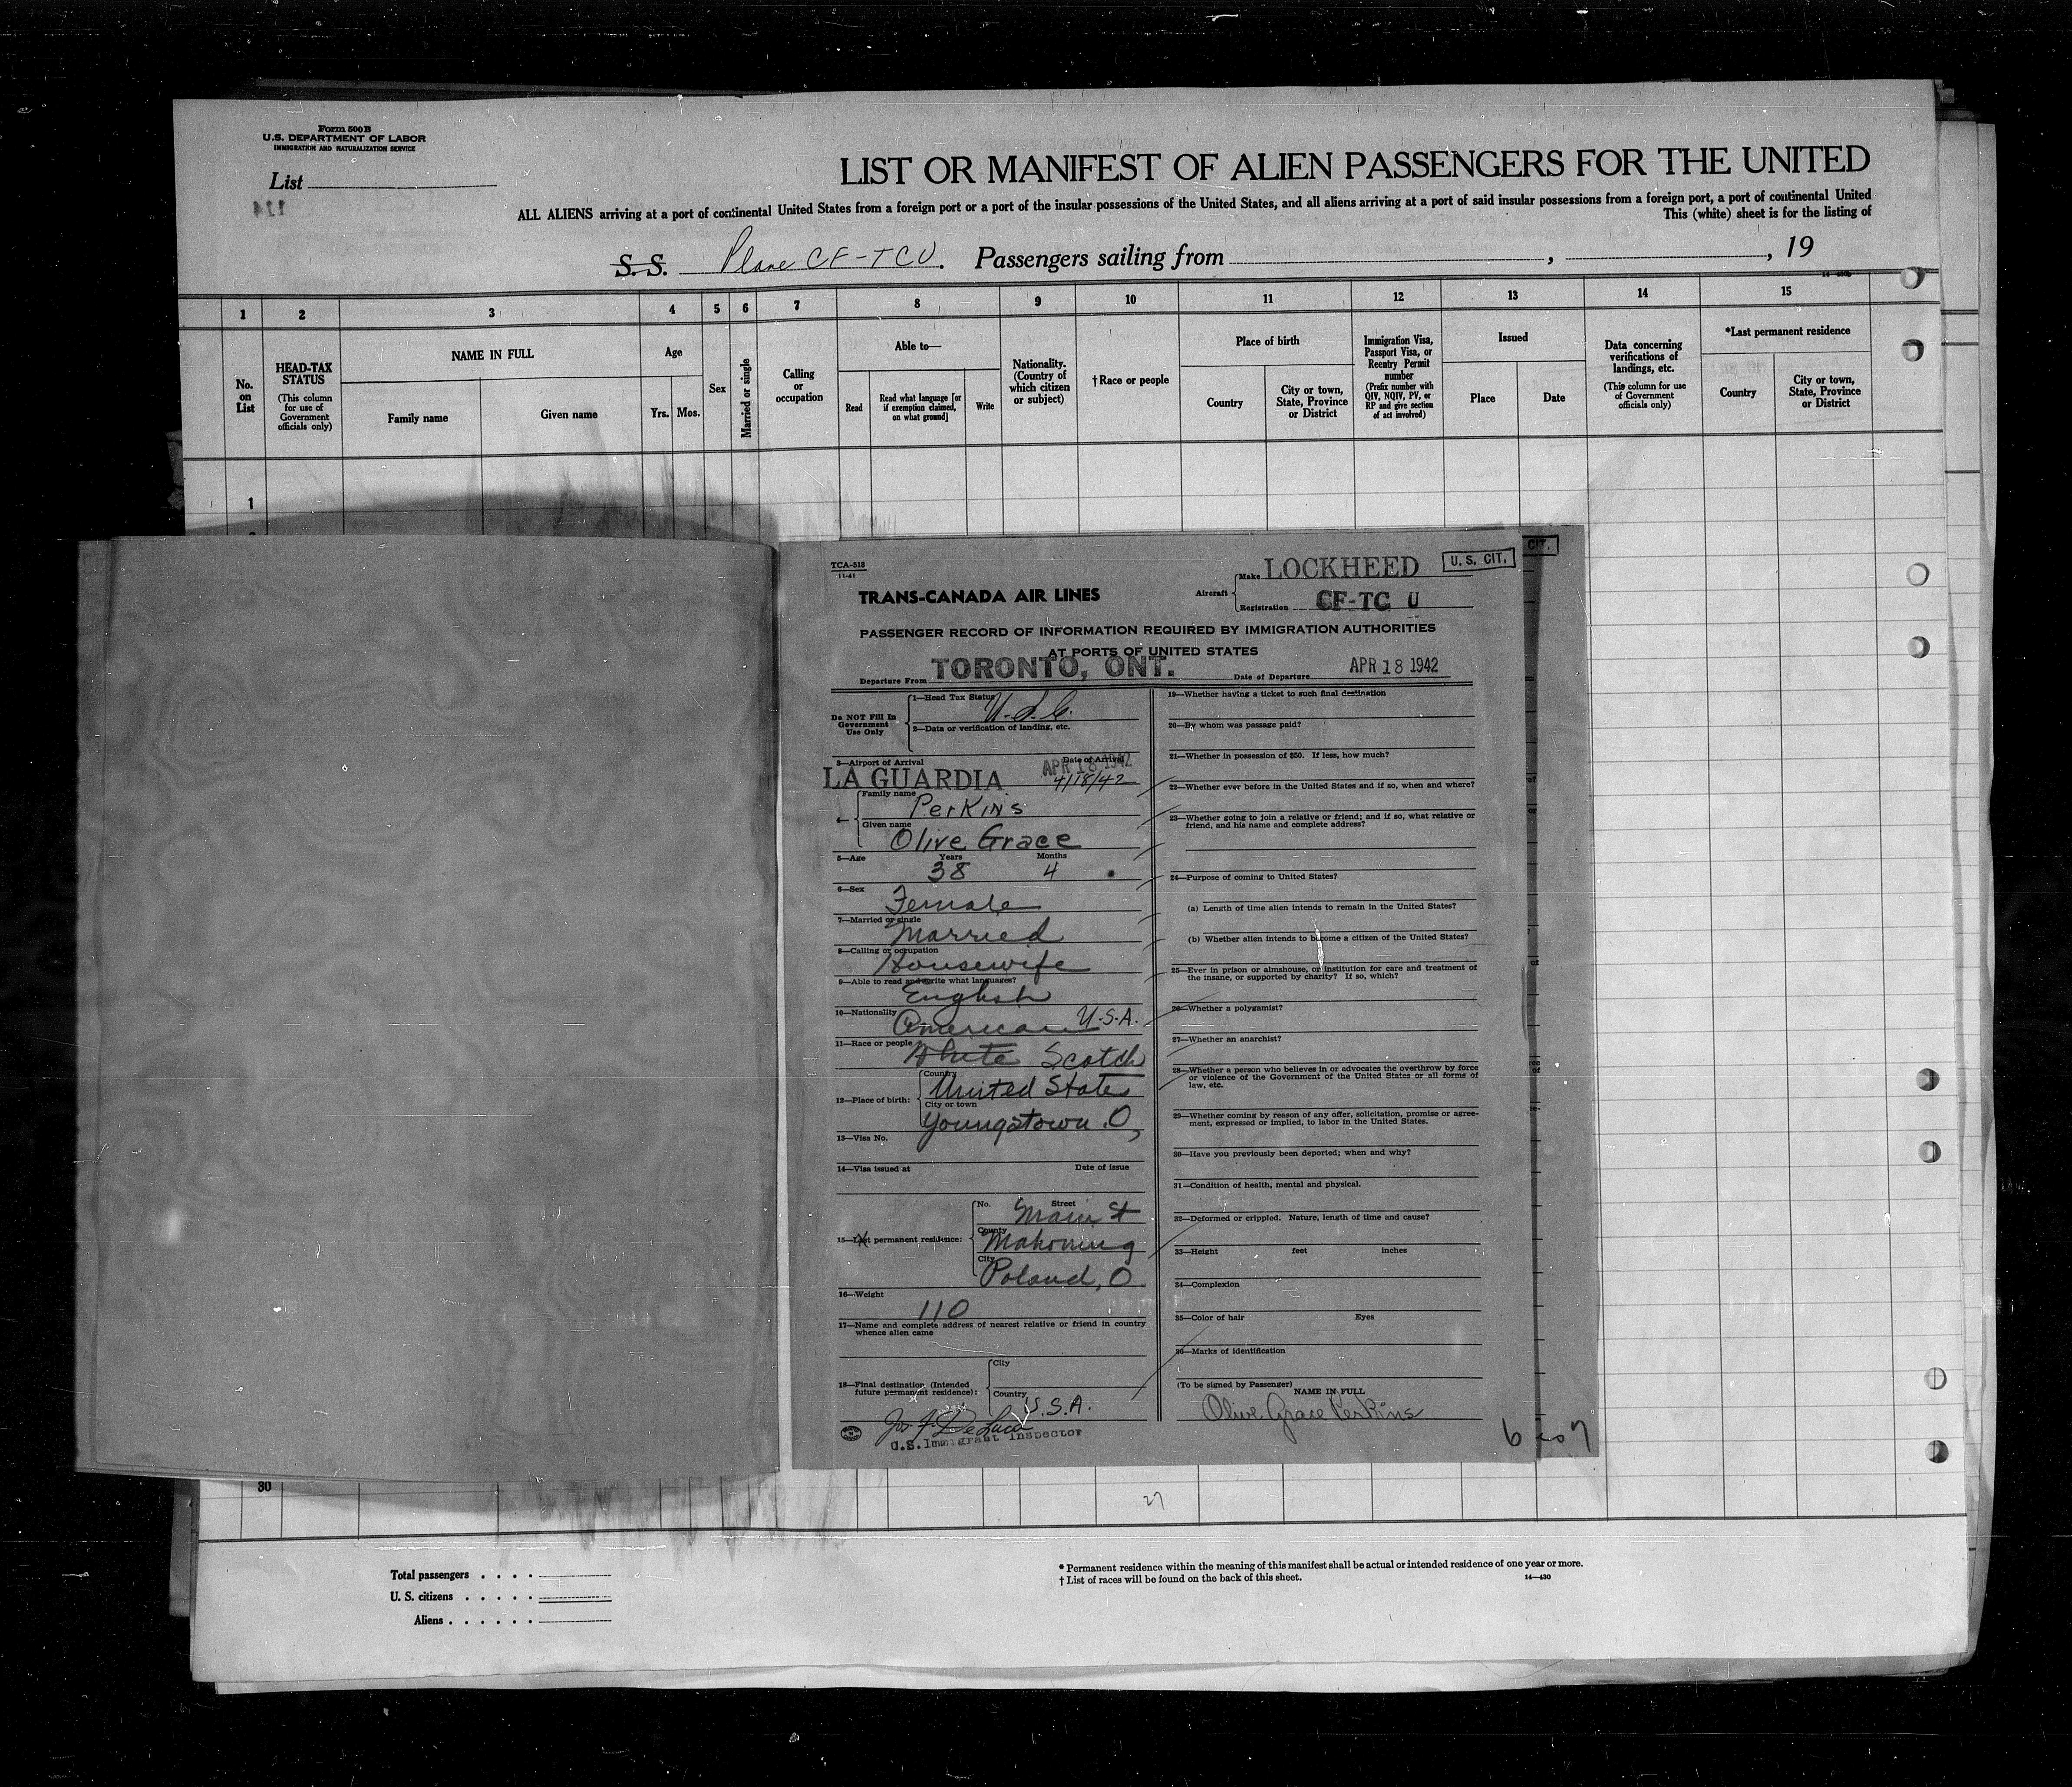 Form 500B
U.S. DEPARTMENT OF LABOR
IMMIGRATION AND NATURALIZATION SERVICE
List
124
LIST OR MANIFEST OF ALIEN PASSENGERS FOR THE UNITED
ALL ALIENS arriving at a port of continental United States from a foreign port or a port of the insular possessions of the United States, and all aliens arriving at a port of said insular possessions from a foreign port, a port of continental United
This (white) sheet is for the listing of
S. S. Plane CF-TCU. Passengers sailing from , , 19
1 2 3 4 5 6 7 8 9 10 11 12 13 14 15
No. on List
HEAD-TAX STATUS
(This column for use of Government officials only)
NAME IN FULL
Family name Given name
Age
Yrs. Mos.
Sex
Married or single
Calling or occupation
Able to—
Read
Read what language [or if exemption claimed, on what ground]
Write
Nationality. (Country of which citizen or subject)
†Race or people
Place of birth
Country
City or town, State, Province or District
Immigration Visa, Passport Visa, or Reentry Permit number
(Prefix number with QIV, NQIV, PV, or RP and give section of act involved)
Issued
Place Date
Data concerning verifications of landings, etc.
(This column for use of Government officials only)
*Last permanent residence
Country
City or town, State, Province or District
1
TCA-518
11-41
TRANS-CANADA AIR LINES
Aircraft
Make LOCKHEED
Registration CF-TC U
U. S. CIT.
CIT.
PASSENGER RECORD OF INFORMATION REQUIRED BY IMMIGRATION AUTHORITIES
AT PORTS OF UNITED STATES
Departure From TORONTO, ONT.
Date of Departure APR 18 1942
Do NOT Fill In Government Use Only
1—Head Tax Status U.S.C.
2—Data or verification of landing, etc.
3—Airport of Arrival Date of Arrival
LA GUARDIA APR 18 1942
4/18/42
Family name Perkins
Given name Olive Grace
5—Age Years 38 Months 4
6—Sex Female
7—Married or single Married
8—Calling or occupation Housewife
9—Able to read and write what languages? English
10—Nationality American U.S.A.
11—Race or people White Scotch
12—Place of birth:
Country United States
City or town Youngstown O,
13—Visa No.
14—Visa issued at Date of issue
15—Last permanent residence:
No. Street Main St
County Mahoning
City Poland, O.
16—Weight 110
17—Name and complete address of nearest relative or friend in country whence alien came
18—Final destination (Intended future permanent residence):
City
Country U.S.A.
Jos F. DeLuca
U.S. Immigrant Inspector
19—Whether having a ticket to such final destination
20—By whom was passage paid?
21—Whether in possession of $50. If less, how much?
22—Whether ever before in the United States and if so, when and where?
23—Whether going to join a relative or friend; and if so, what relative or friend, and his name and complete address?
24—Purpose of coming to United States?
(a) Length of time alien intends to remain in the United States?
(b) Whether alien intends to become a citizen of the United States?
25—Ever in prison or almshouse, or institution for care and treatment of the insane, or supported by charity? If so, which?
26—Whether a polygamist?
27—Whether an anarchist?
28—Whether a person who believes in or advocates the overthrow by force or violence of the Government of the United States or all forms of law, etc.
29—Whether coming by reason of any offer, solicitation, promise or agreement, expressed or implied, to labor in the United States.
30—Have you previously been deported; when and why?
31—Condition of health, mental and physical.
32—Deformed or crippled. Nature, length of time and cause?
33—Height feet inches
34—Complexion
35—Color of hair Eyes
36—Marks of identification
(To be signed by Passenger)
NAME IN FULL
Olive Grace Perkins
30
27
Total passengers . . . .
U. S. citizens . . . . .
Aliens . . . . . .
* Permanent residence within the meaning of this manifest shall be actual or intended residence of one year or more.
† List of races will be found on the back of this sheet.
14—430